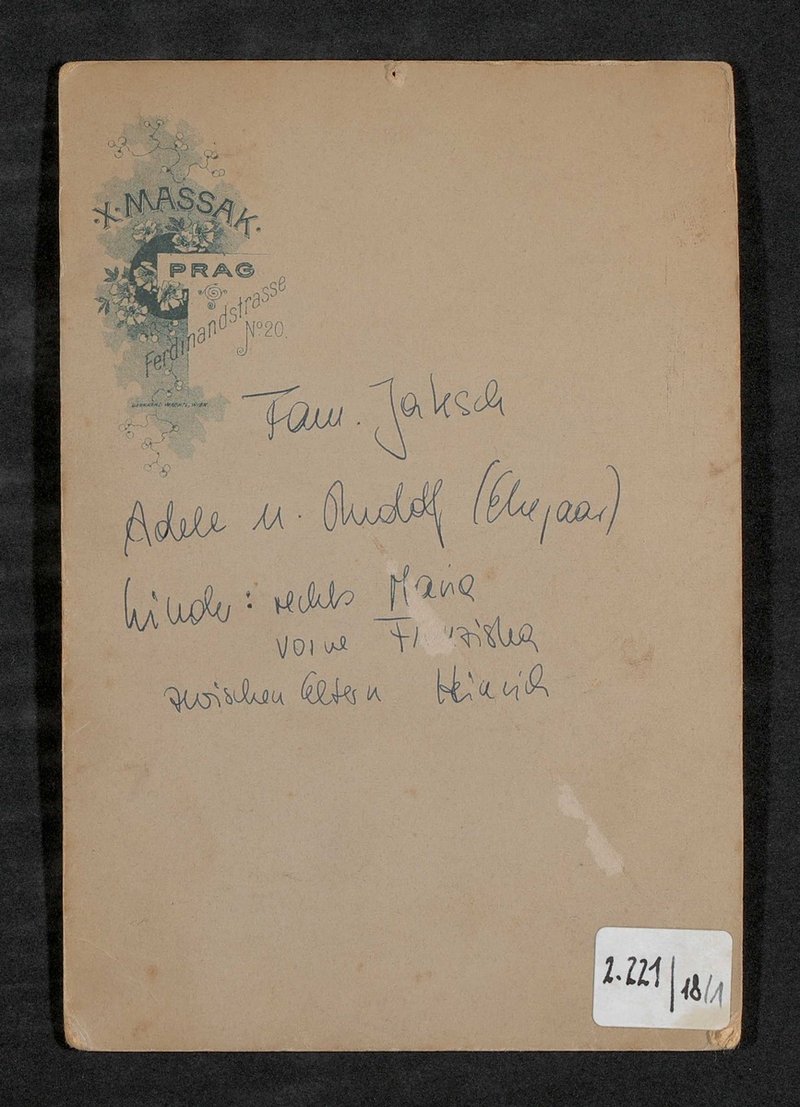 ·X·MASSAK·
PRAG
Ferdinandstrasse
No 20.
BERNHARD WACHTL, WIEN.
Fam. Jaksch
Adele u. Rudolf (Ehepaar)
Kinder: rechts Maria
vorne Franziska
zwischen Eltern Heinrich
2.221/18/1